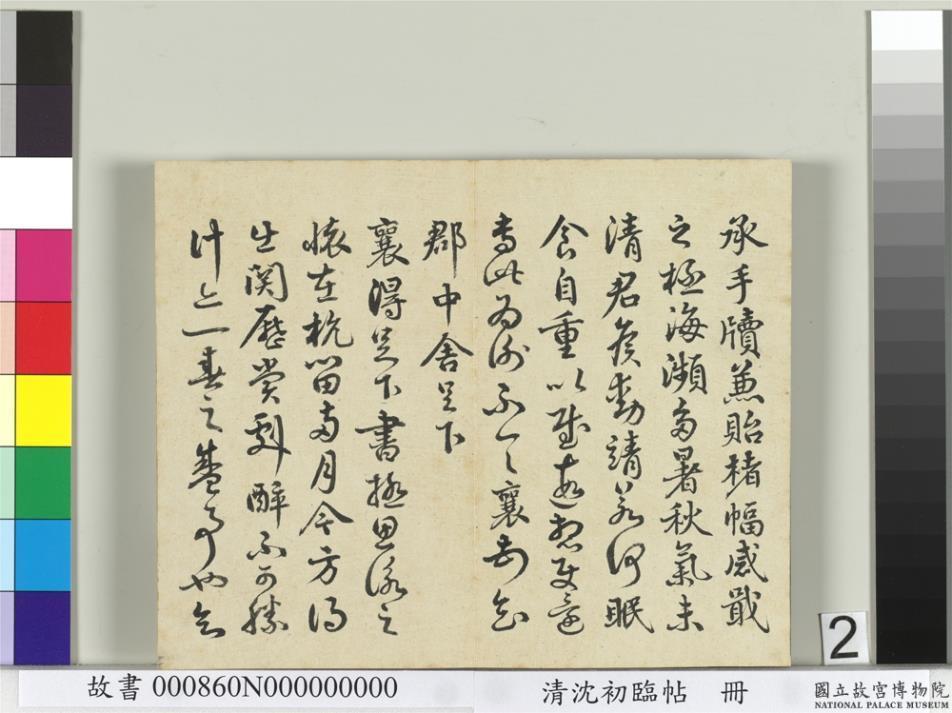 承手牘兼貽楮幅感戢
之極海瀕多暑秋氣未
清君侯動靖若何眠
食自重以慰遠想還
專此為謝不一一襄知
郡中舍足下
襄得足下書極思詠之
懷在杭留兩月今方得
出関歷賞劇醉不可勝
計亦一春之盛事也知
2
故書 000860N000000000
清沈初臨帖 冊
國立故宮博物院
NATIONAL PALACE MUSEUM